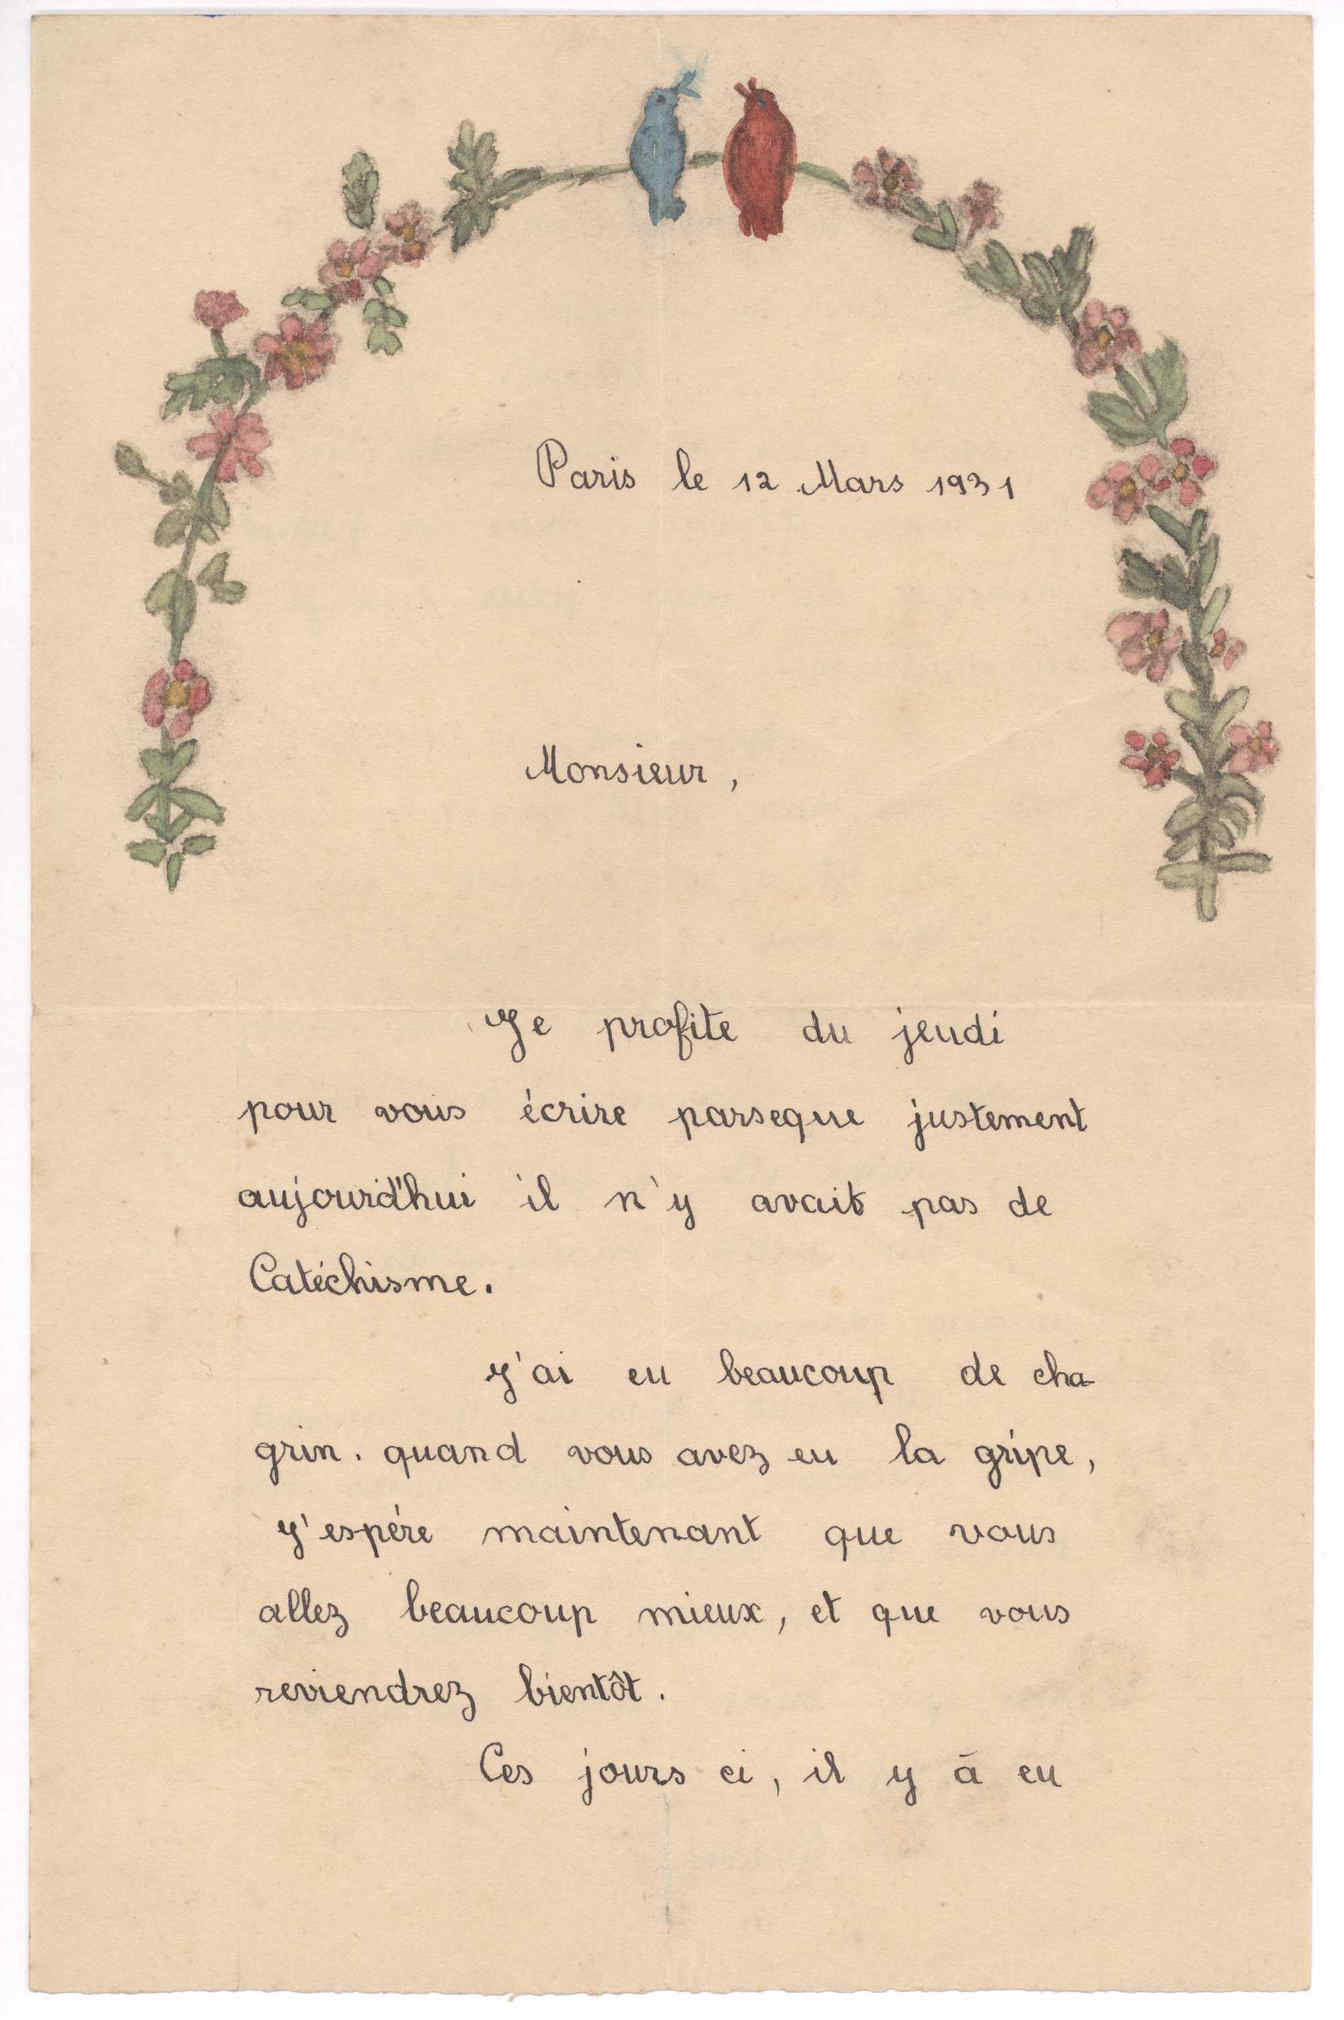 Paris le 12 Mars 1931
Monsieur,
Je profite du jeudi
pour vous écrire parseque justement
aujourd'hui il n'y avait pas de
Catéchisme.
J'ai eu beaucoup de cha-
grin. quand vous avez eu la gripe,
j'espére maintenant que vous
allez beaucoup mieux, et que vous
reviendrez bientôt.
Ces jours ci, il y à eu